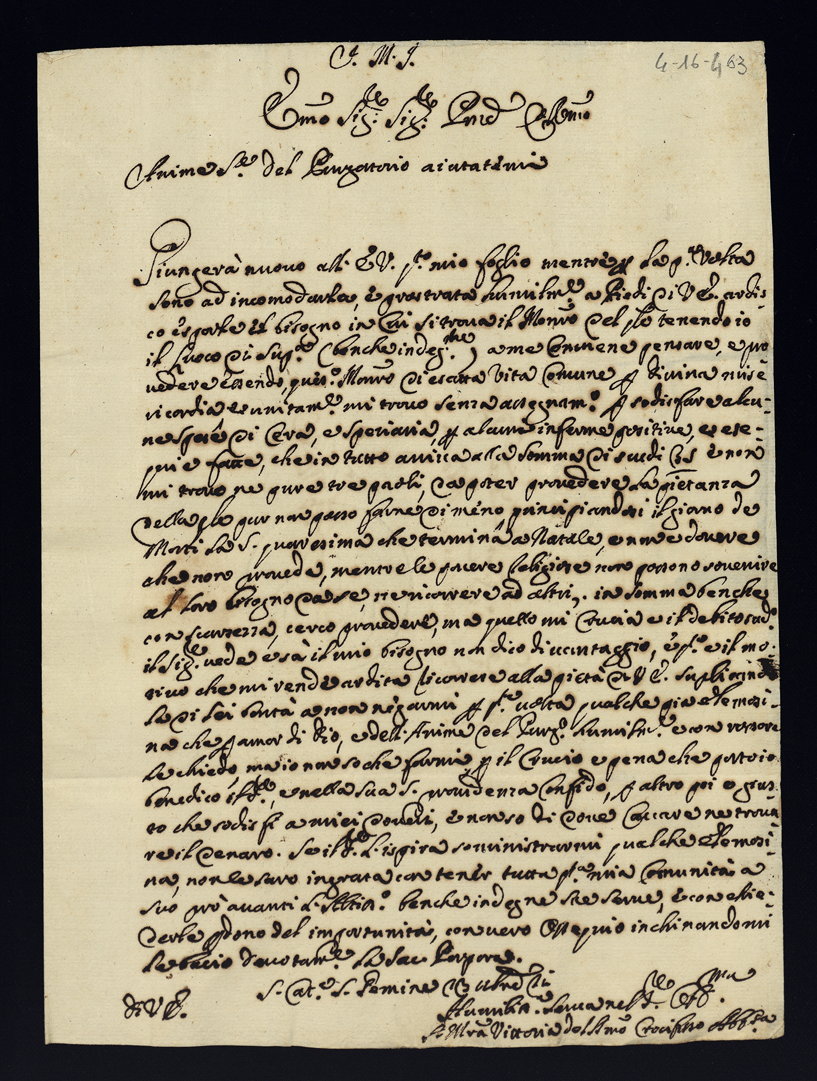 J. M. J.
4-16-463
Emo Sig.re Sig.re Pne
Anime S.te del Purgatorio aiutatemi
Giungerà nuovo all' E V. q.to mio foglio mentre la p.a volta
sono ad incomodarla, e prostrata humilm.te a Piedi di V E. ardis-
co esporle il bisogno in cui si trova il Monro del tenendo io
il luoco di Sup.ra (benche indeg.me) a me conviene pensare, e pro
vedere essendo, ques.o Monro di esata Vita Comune p divina mise
ricordia e unitam.te mi trovo senza assegnam.o p sodisfare alcu-
ne spese di Cera, e speziaria, p alcune inferme e ese-
quie fatte, che in tutto arriva alla somma di scudi e non
mi trovo ne pure tre paoli, da poter provedere la pietanza
della pur non posso farne di meno principiandosi il giorno de
Morti la S. quaresima che termina a Natale, e
che non provede, mentre le povere Religiose non possono sovenire
al loro bisogno da se, ne ricorrere ad altri, in somma benche
con scarzezza, cerco provedere, ma quello mi Crucia e il debito sud.o
il Sig.re vede e sà il mio bisogno non dico di vantaggio, e q.to e il mo-
tivo che mi rende ardita ricorrere alla pietà di V E. suplicando
la di lei bontà a non negarmi p q.ta volta qualche pia elemosi-
na che p amor di Dio, e dell' Anime del Purg.o humilm.te e con rossore
le chiedo, ma io non so che farmi p il Crucio e pena che porto io
benedico il Sig.re, e nella sua S. providenza confido, p altro poi e gius-
to che sodisfi a miei doveri, e non so di dove cavare ne trova
re il denaro. Se il Sig.re l' ispira somministrarmi qualche elemosi-
na, non le saro ingrata con tener tutta q.ta mia Comunità a
suo pro avanti l' Altis.o benche indegne sue serve, e con chie-
derle pdono del importunità, con vero Ossequio inchinandomi
le bacio devotam.te la Sac. Porpora.
S. Cat.a S. Gemine
di V E.
Humilis.a Serva nel Sig.re
S. M.ra Vittoria del Amo Crocifisso Abb.sa